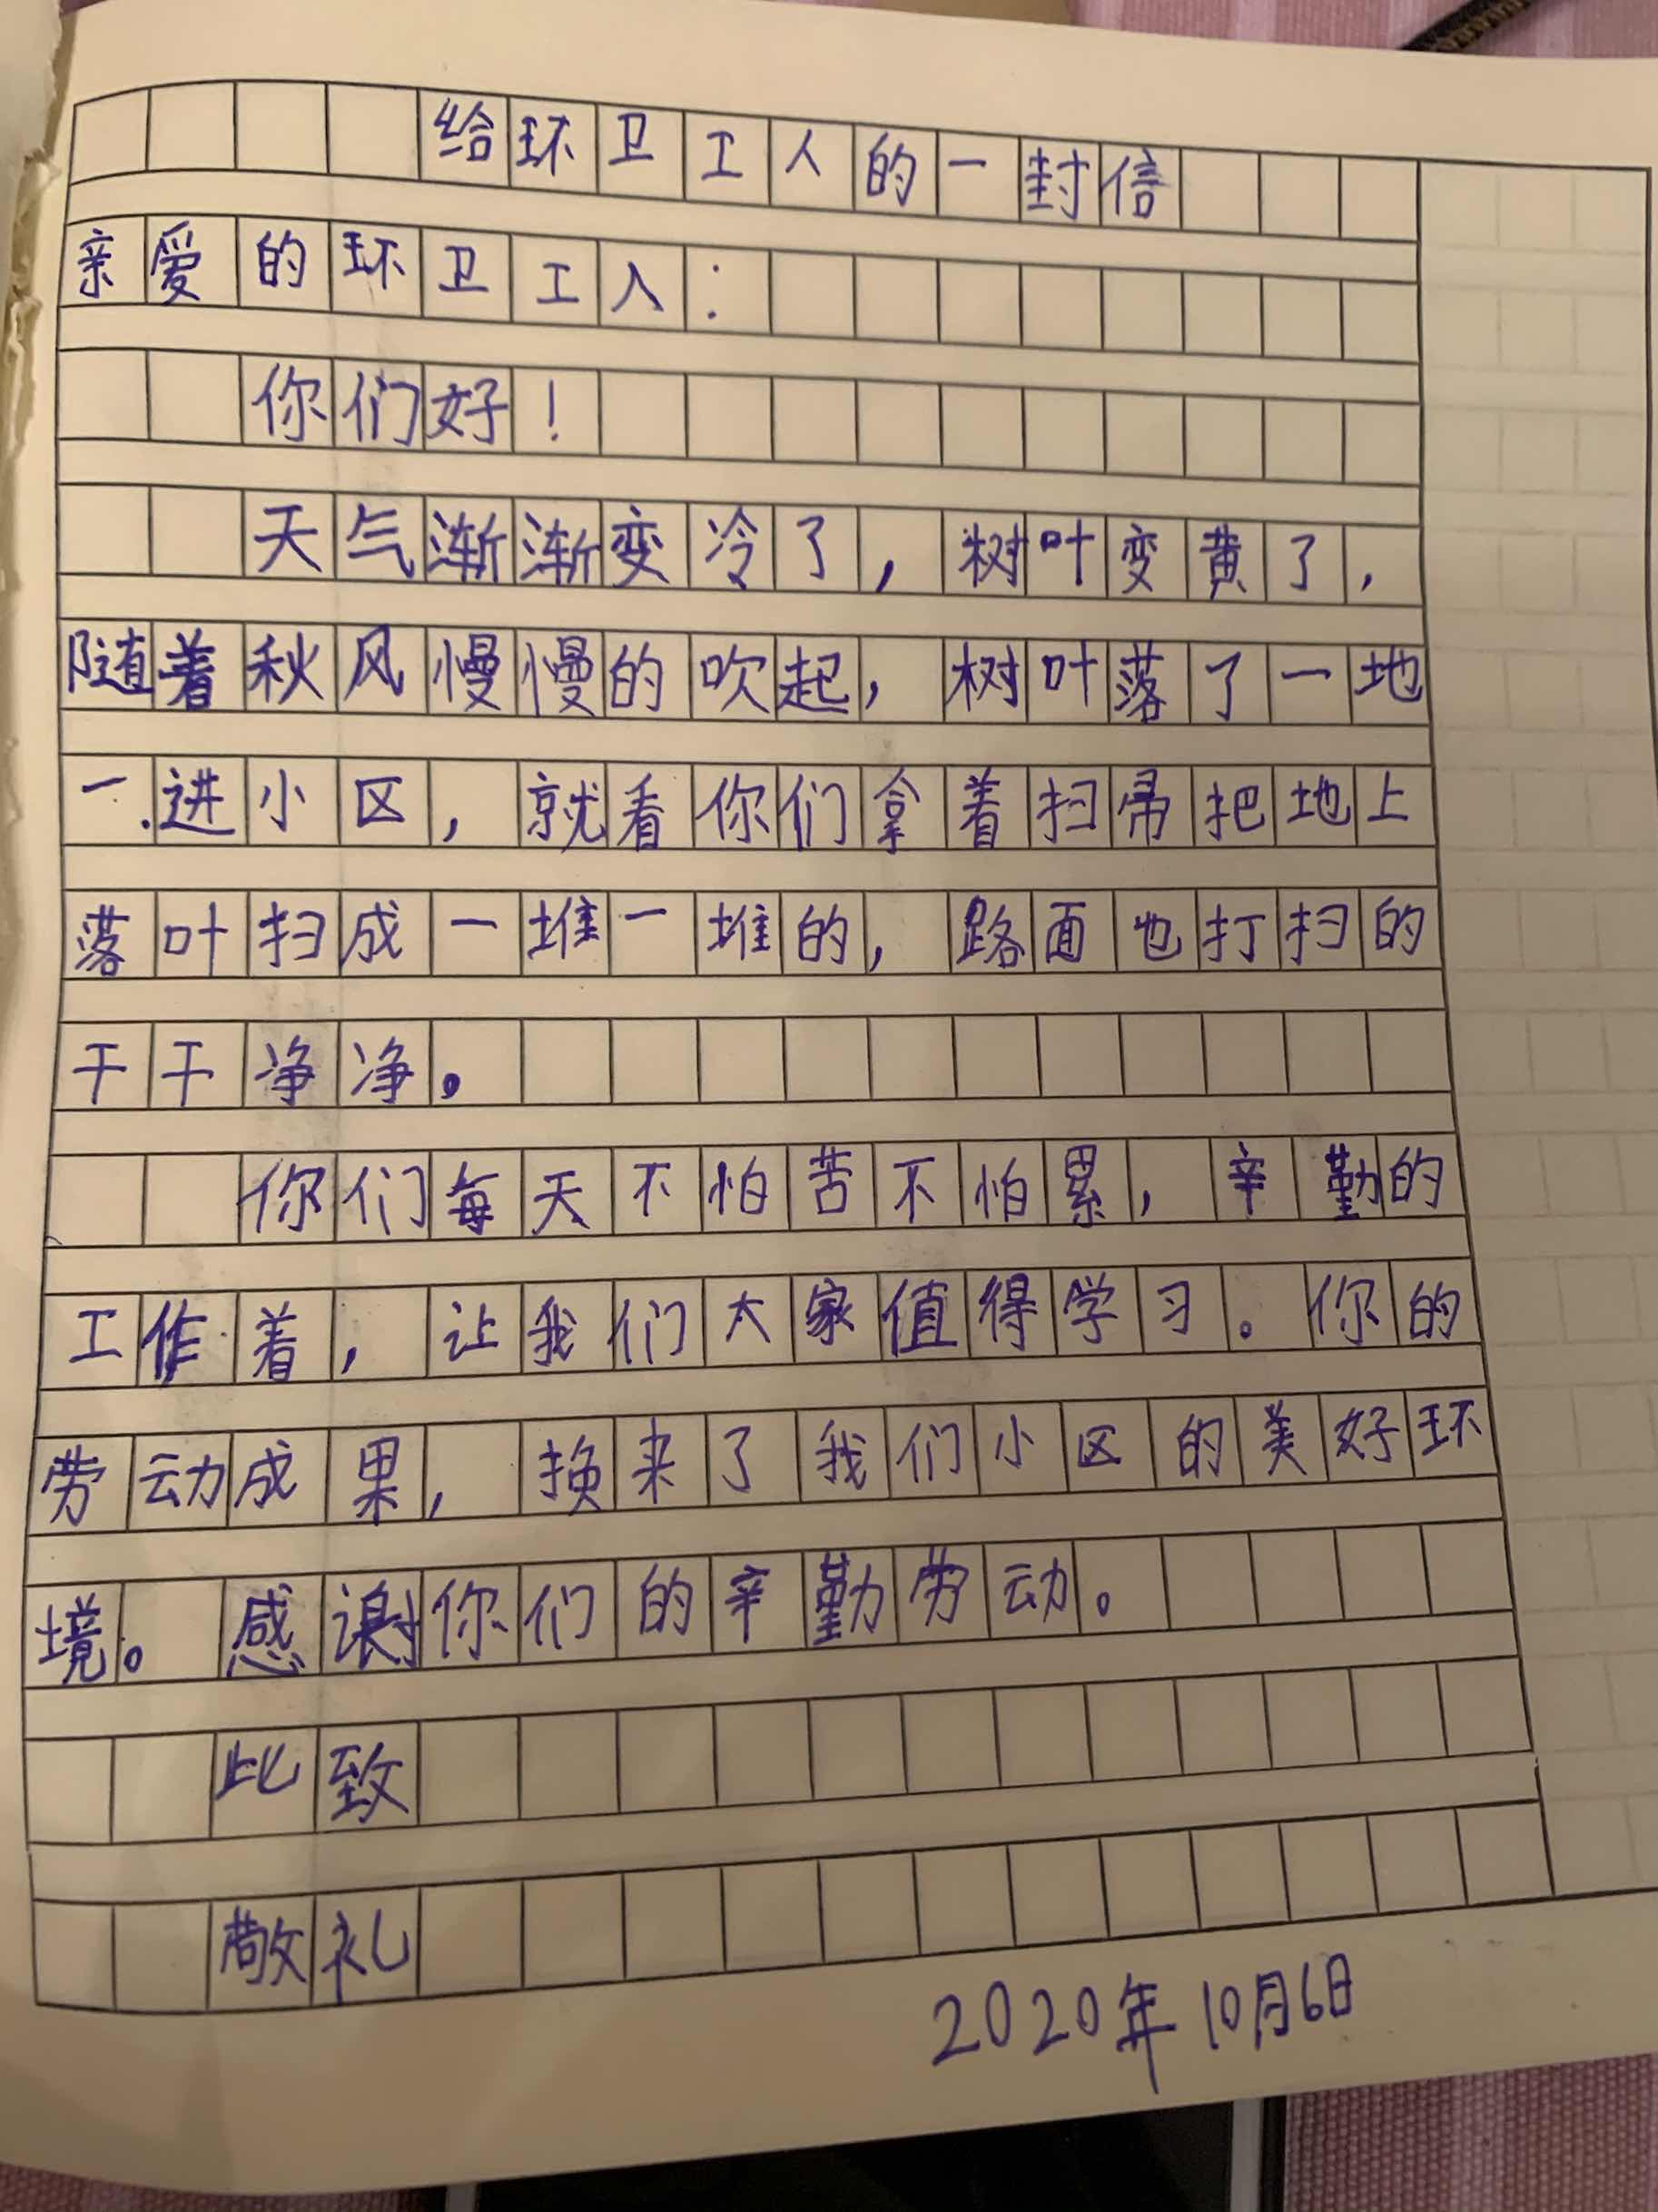 给环卫工人的一封信
亲爱的环卫工人：
你们好！
天气渐渐变冷了，树叶变黄了，
随着秋风慢慢的吹起，树叶落了一地
一.进小区，就看你们拿着扫帚把地上
落叶扫成一堆一堆的，路面也打扫的
干干净净。
你们每天不怕苦不怕累，辛勤的
工作着，让我们大家值得学习。你的
劳动成果，换来了我们小区的美好环
境。感谢你们的辛勤劳动。
此致
敬礼
2020年10月6日